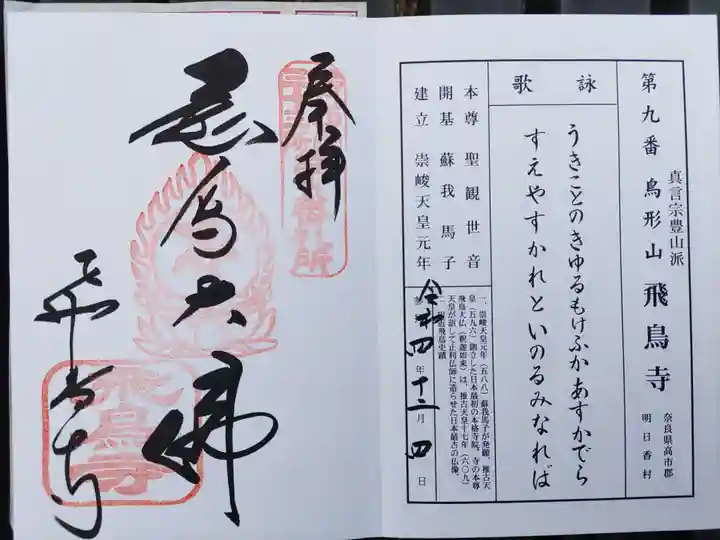 真言宗豊山派
第九番 鳥形山 飛鳥寺
奈良県高市郡
明日香村
詠歌
うきことのきゆるもけふかあすかでら
すえやすかれといのるみなれば
本尊 聖観世音
開基 蘇我馬子
建立 崇峻天皇元年
一、崇峻天皇元年(五八八)蘇我馬子が発願、推古天
皇(五九六)創立した日本最初の本格寺院。寺の本尊
飛鳥大仏(釈迦如来)は、推古天皇十七年(六〇九)
天皇が詔して止利仏師に造らせた日本最古の仏像。
飛鳥史蹟
令和四年十二月四日
奉拝
飛鳥大佛
飛鳥寺
飛鳥寺